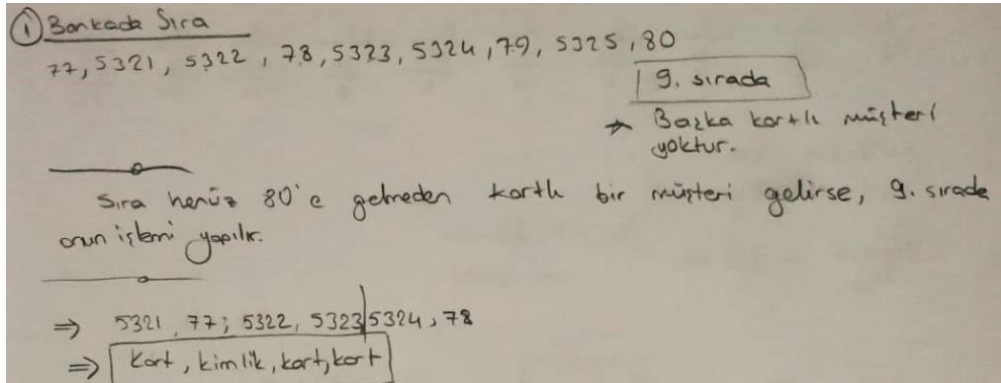 ① Bankada Sıra
77, 5321, 5322, 78, 5323, 5324, 79, 5325, 80
9. sırada
→ Başka kartlı müşteri
yoktur.
Sıra henüz 80'e gelmeden kartlı bir müşteri gelirse, 9. sırada
onun işlemi yapılır.
⇒ 5321, 77, 5322, 5323 | 5324, 78
⇒ kart, kimlik, kart, kart